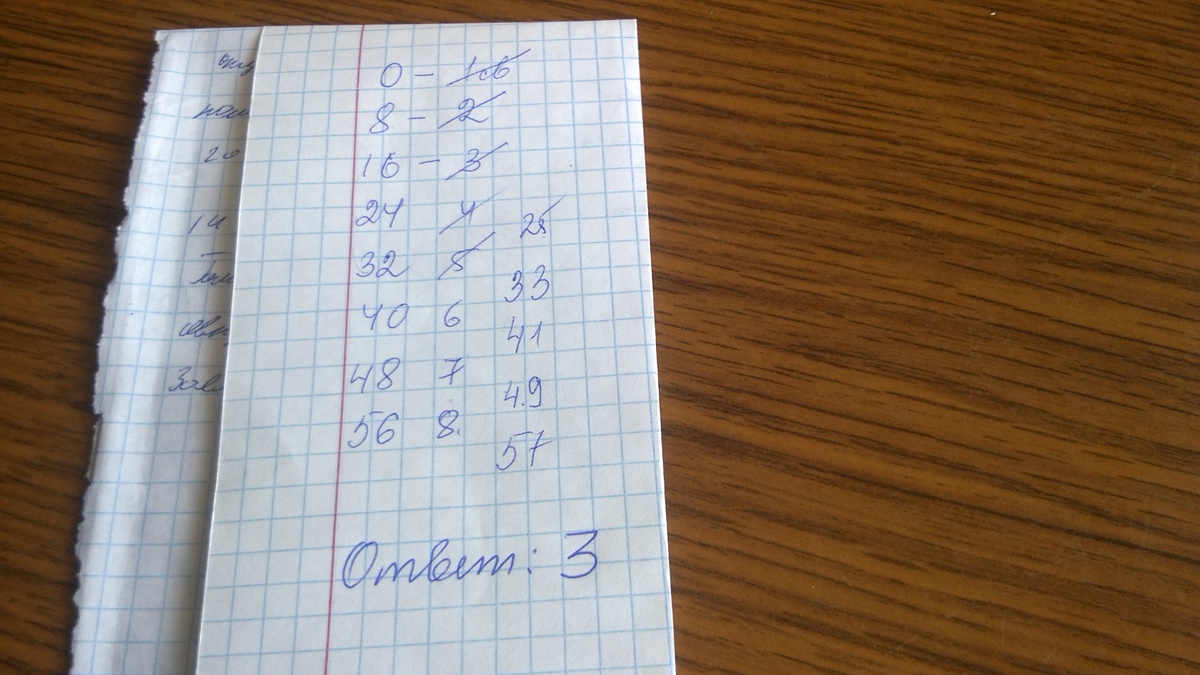 0 - 16
8 - 2
16 - 3
24 4 25
32 5 33
40 6 41
48 7 49
56 8. 57
Ответ: 3